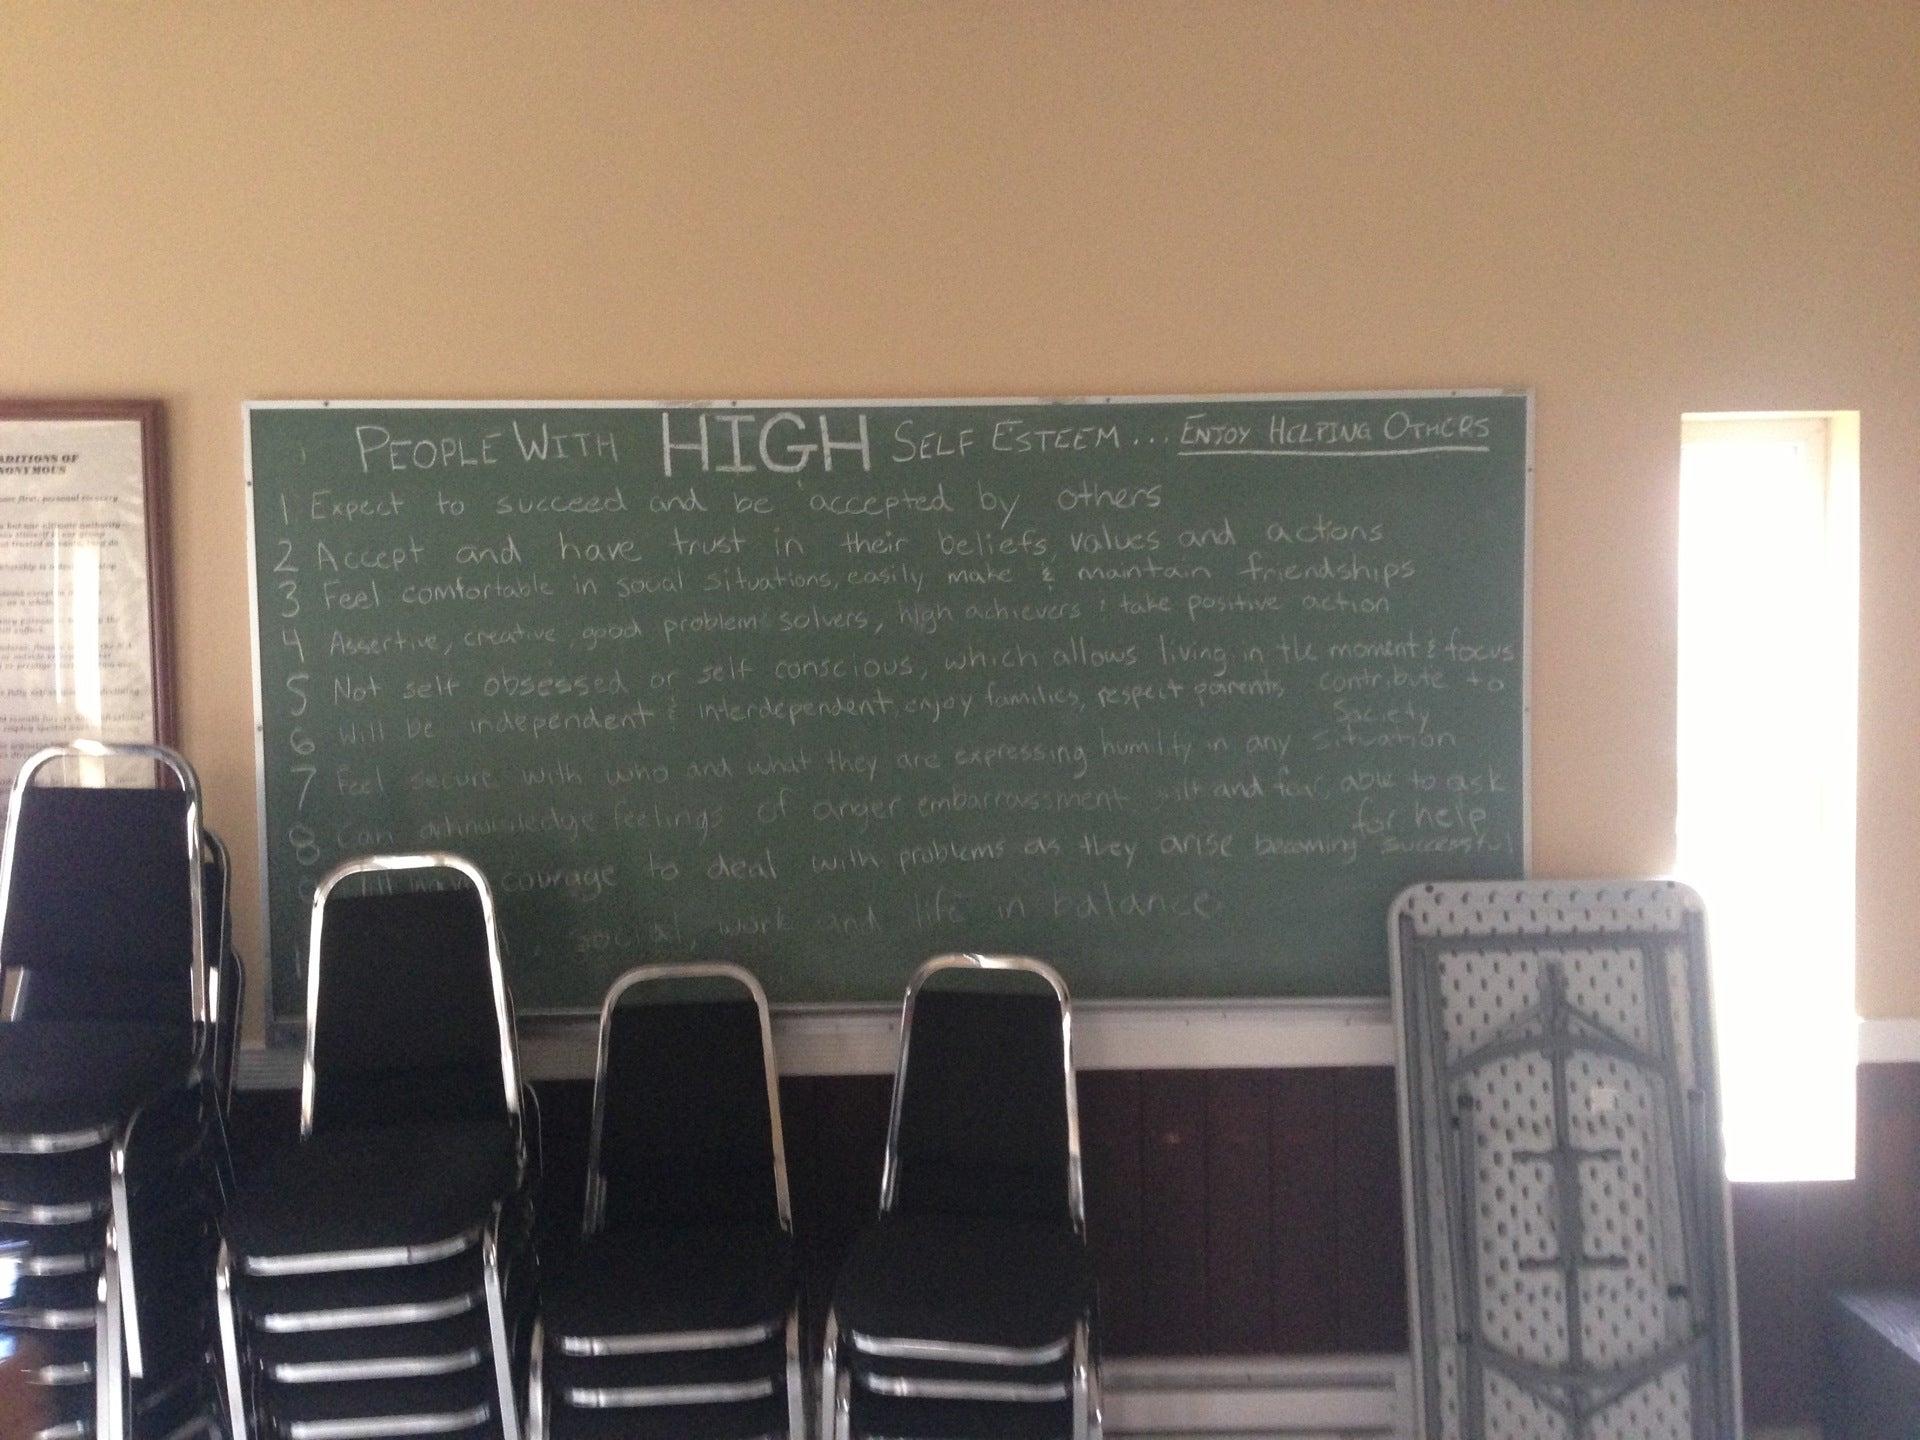 PEOPLE WITH HIGH SELF ESTEEM... ENJOY HELPING OTHERS
1 Expect to succeed and be accepted by others
2 Accept and have trust in their beliefs, values and actions
3 Feel comfortable in social situations, easily make & maintain friendships
4 Assertive, creative, good problem solvers, high achievers & take positive action
5 Not self obsessed or self conscious, which allows living in the moment & focus
6 Will be independent & interdependent, enjoy families, respect parents, contribute to
society
7 Feel secure with who and what they are expressing humility in any situation
8 Can acknowledge feelings of anger embarrassment guilt and fear, able to ask
for help
courage to deal with problems as they arise becoming successful
social, work and life in balance
ADITIONS OF
NONYMOUS
first; personal recovery
but one ultimate authority